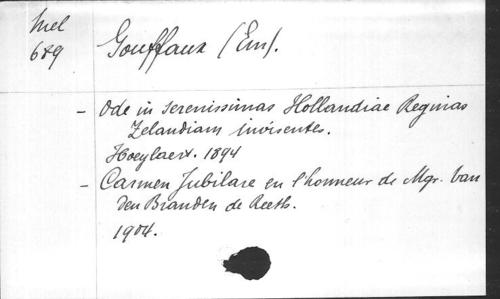 Mel
689
Gouffaux (Em).
- Ode in serenissimas Hollandiae Reginas
Zelandiam invisentes.
Hoeylaert. 1894
- Carmen Jubilare en l'honneur de Mgr. Van
Den Branden de Reeth.
1904.